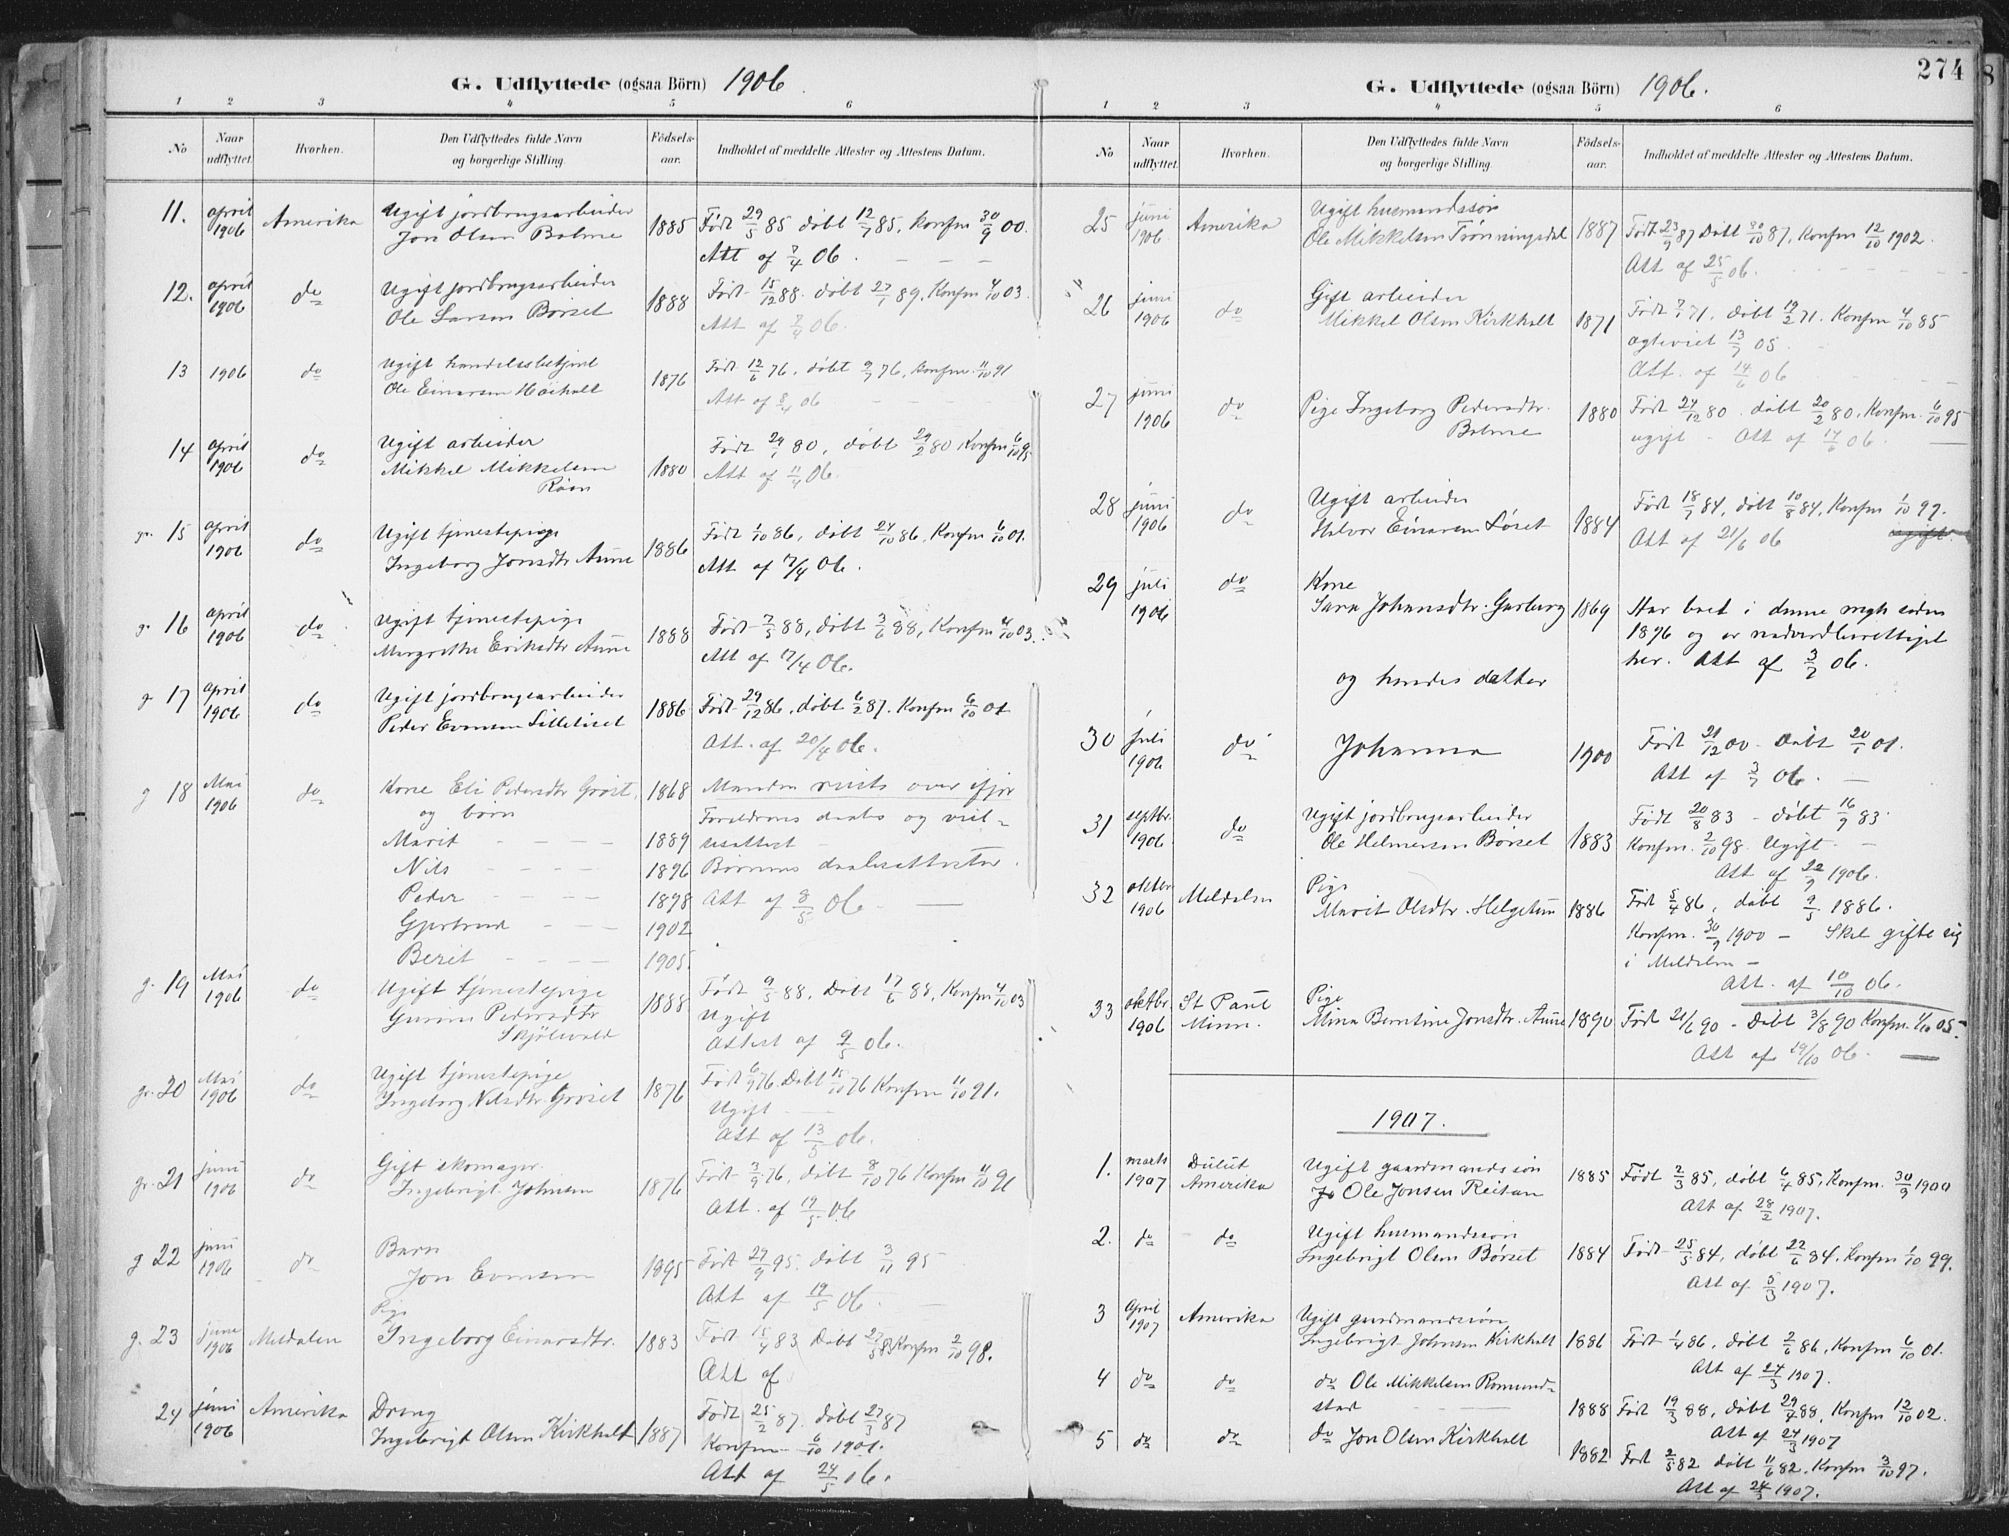 G. Udflyttede (ogsaa Börn) 1906.
1 2 3 4 5 6
No
Naar udflyttet.
Hvorhen.
Den Udflyttedes fulde Navn og borgerlige Stilling.
Födsels-aar.
Indholdet af meddelte Attester og Attestens Datum.
11. april 1906 Amerika Ugift jordbrugsarbeider 1885 Født 29/5 85 døbt 12/7 85, Konfm 30/9 00.
Jon Olsen Bolme Att af 7/4 06.
12. april 1906 do Ugift jordbrugsarbeider 1888 Født 15/12 88. døbt 27/1 89, Konfm 4/10 03.
Ole Larsen Börset Att af 7/4 06.
13 1906 do Ugift handelsbetjent 1876 Født 12/6 76, døbt 9/7 76, Konfm 11/10 91
Ole Einarsen Höiholt Att af 8/4 06
14 april 1906 do Ugift arbeider 1880 Født 29/1 80, døbt 29/2 80 Konfm 6/10 95
Mikkel Mikkelsen Att af 11/4 06.
Röen
gr. 15 april 1906 do Ugift tjenestepige 1886 Født 1/10 86, døbt 24/10 86, Konfm 6/10 01.
Ingeborg Jonsdtr Aune Att af 17/4 06.
g. 16 april 1906 do Ugift tjenestepige 1888 Født 7/5 88, døbt 3/6 88, Konfm 4/10 03.
Margrethe Eriksdtr Aune Att af 17/4 06.
g. 17 april 1906 do Ugift jordbrugsarbeider 1886 Født 29/12 86, døbt 6/2 87. Konfm 6/10 01
Peder Evensen Lilleliset Att. af 20/4 06.
g 18 Mai 1906 do Kone Eli Pedersdtr Gröset, 1868 Manden reiste over ifjor
og börn Forældrenes daabs og viel-
Marit 1889 sesattest
Nils 1896 Børnenes daabsattester.
Peder 1898 Att af 8/5 06
Gjertrud 1902
Berit 1905.
g. 19 Mai 1906 do Ugift tjenestepige 1888 Født 9/5 88, Døbt 17/6 88, Konfm 4/10 03
Gurine Pedersdtr Ugift
Skjölvold Attest af 9/5 06.
gr. 20 Mai 1906 do Ugift tjenestepige 1876 Født 6/9 76. Døbt 15/10 76 Konfm 11/10 91.
Ingeborg Nilsdtr. Gröset Ugift
Att af 13/5 06.
gr. 21 juni 1906 do Gift skomager. 1876 Født 3/9 76, døbt 8/10 76 Konfm 11/10 91
Ingebrigt Johnsen Att. af 19/5 06
g 22 juni 1906 do Barn 1895 Født 27/9 95. døbt 3/11 95
Jon Evensen Att af 19/5 06.
g. 23 juni 1906 Meldalen Pige
Ingeborg Einarsdtr. 1883 Født 15/4 83. Døbt 27/5 83 Konfm 2/10 98.
Att af
24 juni 1906 Amerika Dreng 1887 Født 25/2 87. døbt 27/3 87
Ingebrigt Olsen Kirkholt Konfm 6/10 1901.
Att af 24/5 06.
274
G. Udflyttede (ogsaa Börn) 1906.
1 2 3 4 5 6
No
Naar udflyttet.
Hvorhen.
Den Udflyttedes fulde Navn og borgerlige Stilling.
Födsels-aar.
Indholdet af meddelte Attester og Attestens Datum.
25 juni 1906. Amerika Ugift husmandssön
Ole Mikkelsen Trönningsdal 1887 Født 23/9 87 Døbt 30/10 87, Konfm 12/10 1902.
Att af 25/5 06.
26 juni 1906 do Gift arbeider
Mikkel Olsen Kirkholt 1871 Født 7/1 71, døbt 19/2 71. Konfm 4/10 85
ægteviet 13/7 05.
Att. af 14/6 06
27 juni 1906 do Pige Ingeborg Pedersdtr. 1880 Født 24/12 80. døbt 20/2 80, Konfm. 6/10 95
Bolme ugift - Att af 17/6 06.
28 juni 1906 do Ugift arbeider
Halvor Einarsen Löset 1884 Født 18/7 84, døbt 10/8 84, Konfm 1/10 99.
Att af 21/6 06 ugift.
29 juli 1906 do Kone
Sara Johansdtr. Garberg 1869 Har boet i denne mgh siden
1896 og er nadverdberettiget
her. Att af 3/7 06.
og hendes datter
30 juli 1906 do Johanna 1900 Født 21/12 00 - Døbt 20/1 01.
Att af 3/7 06.
31 septbr. 1906 do Ugift jordbrugsarbeider
Ole Helmersen Börset 1883 Født 20/8 83 - døbt 16/9 83.
Konfm. 2/10 98. Ugift
Att af 22/9 1906.
32 oktbr 1906 Meldalen Pige
Marit Olsdtr. Helgetun 1886 Født 5/4 86, døbt 9/5 1886.
Konfm. 30/9 1900 - Skal gifte sig
i Meldalen -
Att. af 10/10 06.
33 oktbr 1906 St Paul Minn. Pige
Mina Berntine Jonsdtr. Aune 1890 Født 21/6 90 - Døbt 3/8 90 Konfm. 1/10 05.
Att af 19/10 06.
1907.
1. marts 1907 Dulut Amerika Ugift gaardmandssön 1885 Født 2/3 85, døbt 6/4 85, Konfm. 30/9 1900
Jo Ole Jonsen Reitan Att af 28/2 1907.
2. do do Ugift husmandssön
Ingebrigt Olsen Börset 1884 Født 25/5 84, døbt 22/6 84, Konfm 1/10 99.
Att af 5/3 1907.
3 April 1907 Amerika Ugift gaardmandssön
Ingebrigt Johnsen Kirkholt 1886 Født 1/4 86, døbt 2/6 86, Konfm 6/10 01.
Att af 24/3 1907.
4 do do do Ole Mikkelsen Romund-
stad 1888 Født 19/3 88, døbt 29/4 88, Konfm 12/10 02.
Att af 24/3 1907
5 do do do Jon Olsen Kirkholt 1882 Født 2/5 82 døbt 11/6 82. Konfm 3/10 97.
Att af 24/3 1907.